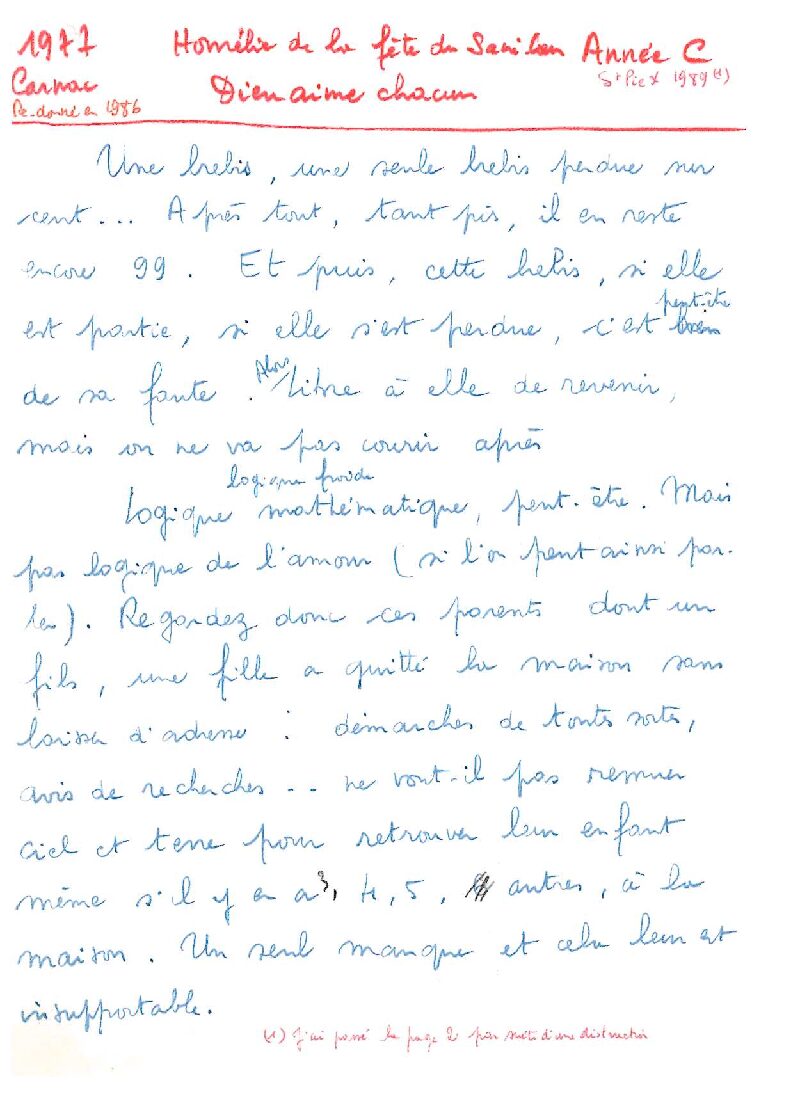 1977 Homélie de la fête du Sacré Cœur Année C
Carnac Dieu aime chacun St Pie X 1989 (1)
Re-donné en 1986
Une brebis, une seule brebis perdue sur
cent... Après tout, tant pis, il en reste
encore 99. Et puis, cette brebis, si elle
peut-être
est partie, si elle s'est perdue, c'est bien
Alors
de sa faute. Libre à elle de revenir,
mais on ne va pas courir après
logique froide
Logique mathématique, peut-être. Mais
pas logique de l'amour (si l'on peut ainsi par-
ler). Regardez donc ces parents dont un
fils, une fille a quitté la maison sans
laisser d'adresse : démarches de toutes sortes,
avis de recherches .. ne vont-il pas remuer
ciel et terre pour retrouver leur enfant
même s'il y en a 3, 4, 5, autres, à la
maison. Un seul manque et cela leur est
insupportable.
(1) J'ai passé la page 2 par suite d'une distraction